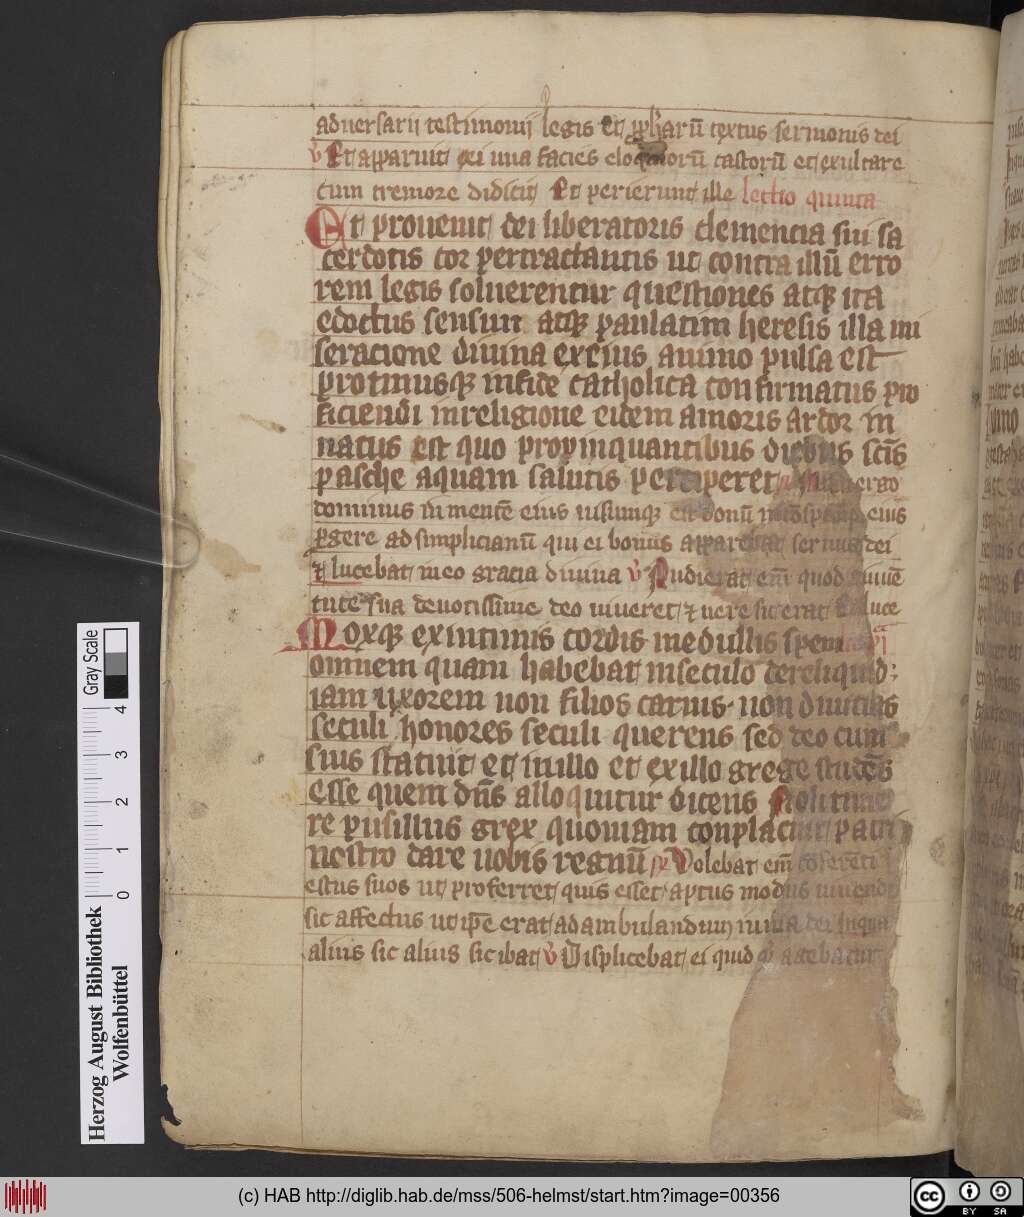 aduersarii testimonij legis et ꝓphaꝝ textus sermonis dei
℣ Et apparuit ei una facies eloquiorū castorū et exultare
cum tremore didicit Et perierunt ille lectio quinta
Et prouenit dei liberatoris clemencia siu sa
cerdotis cor pertractantis ut contra illū erro
rem legis soluerentur questiones atqꝫ ita
edoctus sensim atqꝫ paulatim heresis illa mi
seracione diuina ex eius animo pulsa est
protinusqꝫ in fide catholica confirmatus pro
ficiendi in religione eidem amoris ardor in
natus est quo propinquantibus diebus scīs
pasche aquam salutis perciperet ergo
dominus in mentē eius uisumqꝫ est bonū in eius
ꝑgere ad simplicianū qui ei bonus apparebat seruus dei
⁊ lucebat in eo gracia diuina ℣ Audierat em̄ quod a iuuē
tute sua deuotissime deo uiueret ⁊ uere sic erat luce
Moxqꝫ ex intimis cordis medullis spem
omnem quam habebat in seculo dereliquid
iam uxorem non filios carnis non diuicias
seculi honores seculi querens sed deo cum
suis statuit et in illo et ex illo grege studēs
esse quem dn̄s alloquitur dicens Nolite time
re pusillus grex quoniam conplacuit patri
nostro dare uobis regnū Volebat em̄ coferenti
estus suos ut proferret quis esset aptus modus uiuendi
sic affectus ut ip̄e erat ad ambulandum in uia dei in qua
alius sic alius sic ibat ℣ Displicebat ei quid qͥd agebatur
Gray Scale
0 1 2 3 4
Herzog August Bibliothek
Wolfenbüttel
(c) HAB http://diglib.hab.de/mss/506-helmst/start.htm?image=00356
cc BY SA